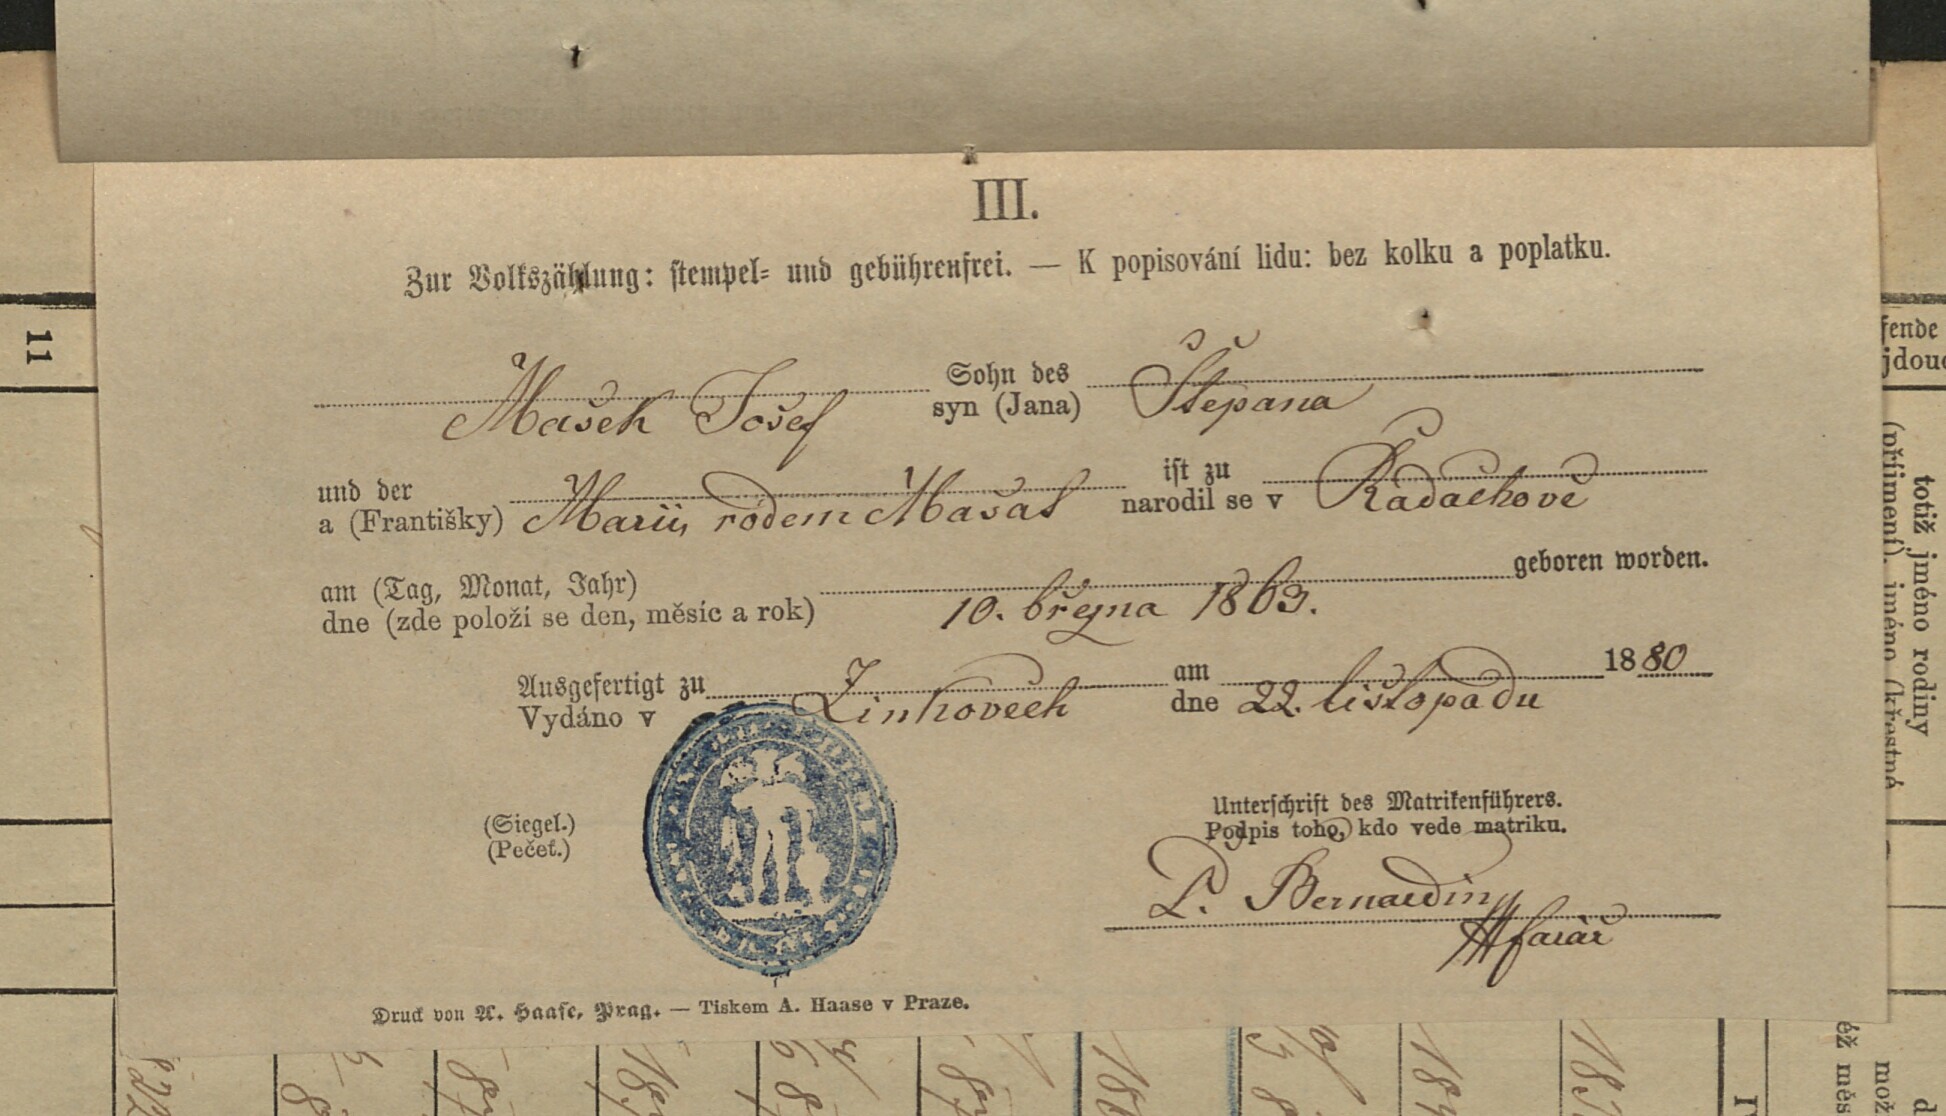 III.
Zur Volkszählung: stempel- und gebührenfrei. — K popisování lidu: bez kolku a poplatku.
Mašek Josef Sohn des Štěpana
syn (Jana)
und der Marii, rodem Mašat ist zu Řadachově
a (Františky) narodil se v
am (Tag, Monat, Jahr) 10. března 1863. geboren worden.
dne (zde položí se den, měsíc a rok)
Ausgefertigt zu Zinkovech am 22. listopadu 1880
Vydáno v dne
(Siegel.)
(Pečeť.)
Unterschrift des Matrikenführers.
Podpis toho, kdo vede matriku.
P. Bernardin
farář
Druck von A. Haase, Prag. — Tiskem A. Haase v Praze.
11
fende
jdouc
totiž jméno rodiny
(příjmení), jméno (křestné